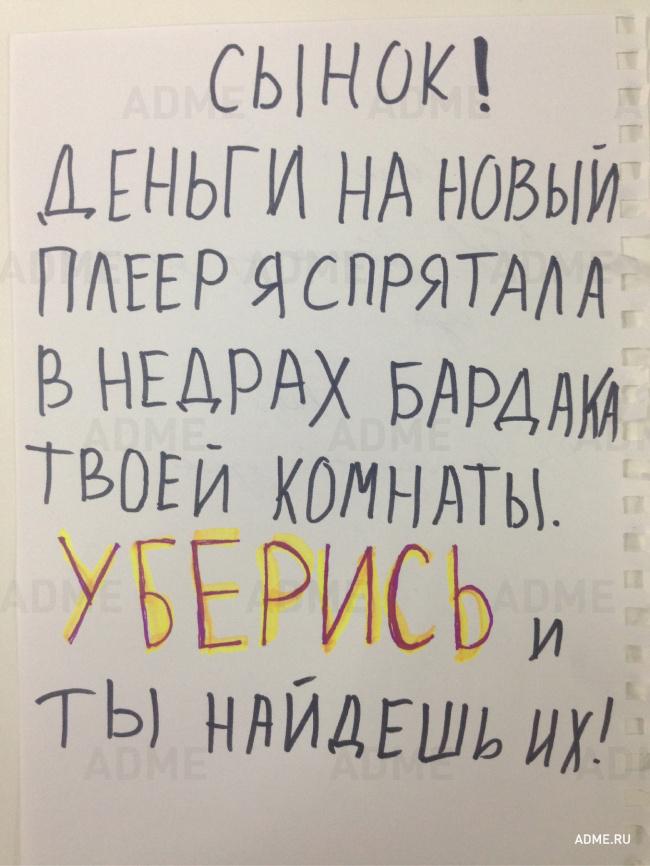 СЫНОК!
ДЕНЬГИ НА НОВЫЙ
ПЛЕЕР Я СПРЯТАЛА
В НЕДРАХ БАРДАКА
ТВОЕЙ КОМНАТЫ.
УБЕРИСЬ И
ТЫ НАЙДЕШЬ ИХ!
ADME.RU